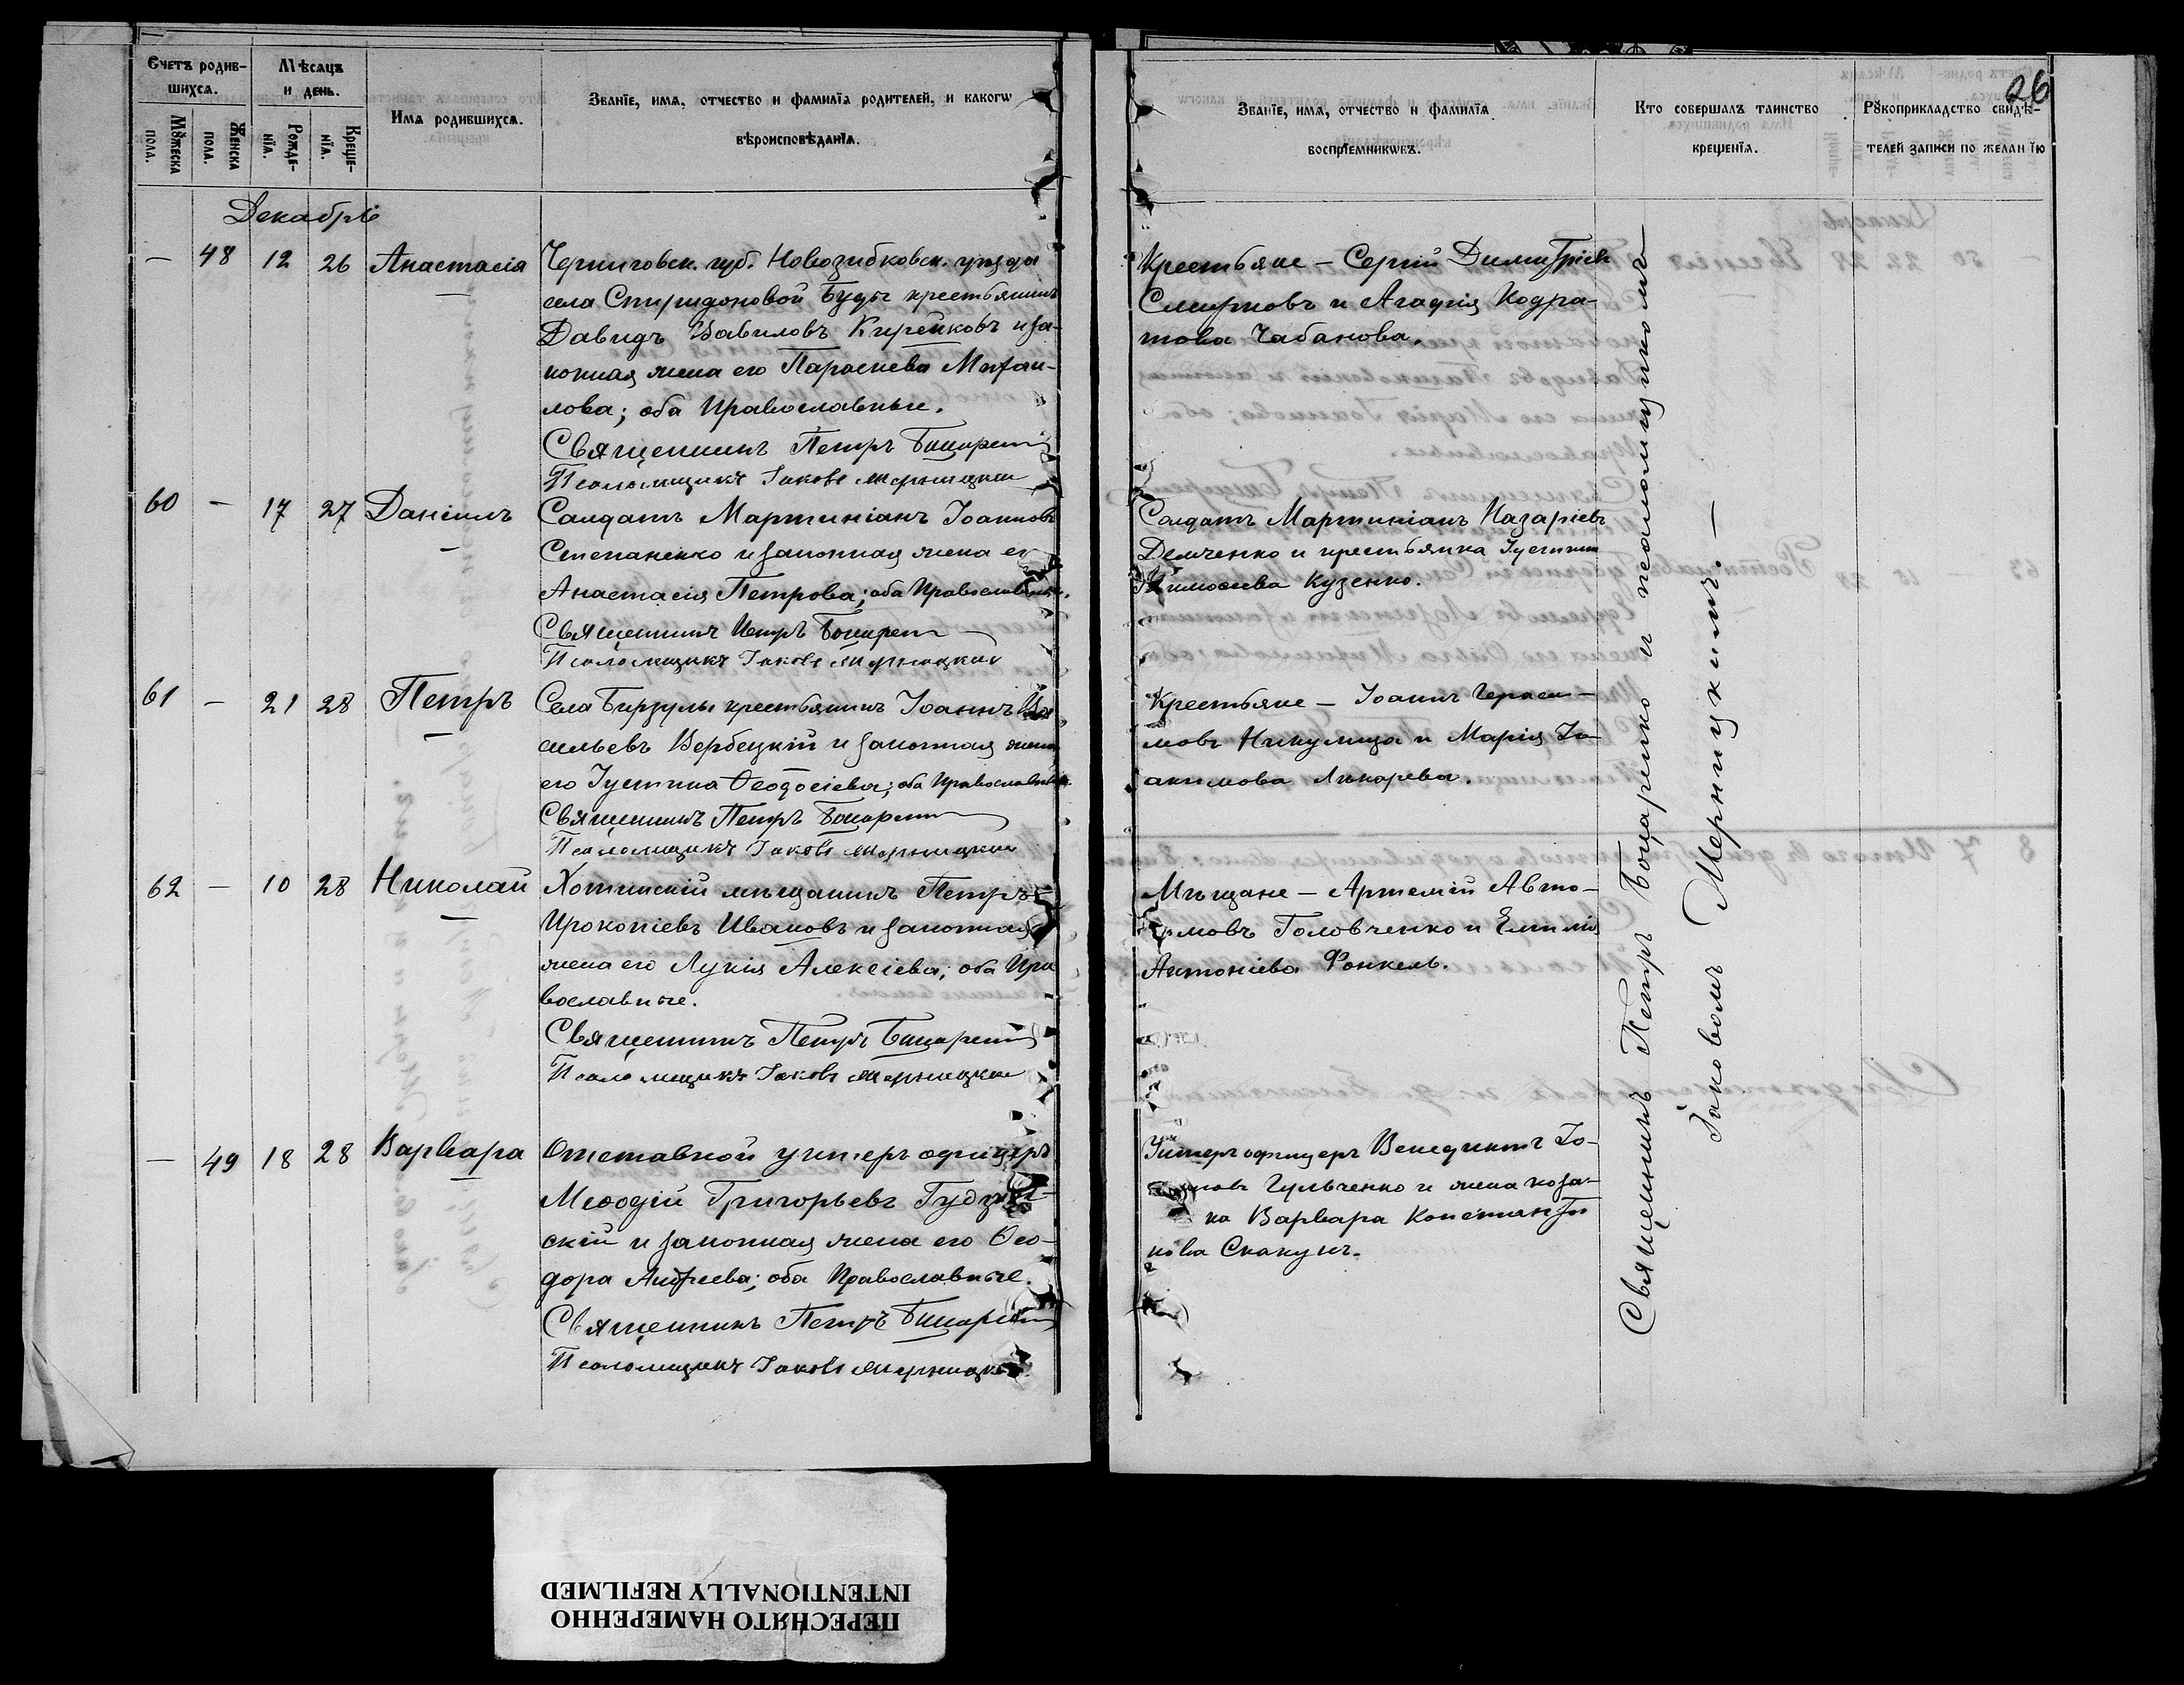 Счетъ родив-
шихсѧ.
Мѣсѧцъ
и день.
Имѧ родившихсѧ.
Званїе, имѧ, отчество и фамилїѧ родителей, и какогѡ
вѣроисповѣданїѧ.
Мꙋжеска
пола.
Женска
пола.
Рожде-
нїѧ.
Креще-
нїѧ.
Декабрь
— 48 12 26 Анастасія
Черниговск. губ. Новозибковск. уѣзда
села Спиридоновой Буды крестьянинъ
Давидъ Вавиловъ Кирейковъ и за-
конная жена его Параскева Михаи-
лова; оба Православные.
Священникъ Петръ Боцаренко
Псаломщикъ Іаковъ Мерницкій
60 — 17 27 Даніилъ
Солдатъ Мартиніанъ Іоанновъ
Степаненко и законная жена его
Анастасія Петрова; оба Православные.
Священникъ Петръ Боцаренко
Псаломщикъ Іаковъ Мерницкій
61 — 21 28 Петръ
Села Бирзулы крестьянинъ Іоаннъ Ва-
сильевъ Вербецкій и законная жена
его Іустина Ѳеодосіева; оба Православные.
Священникъ Петръ Боцаренко
Псаломщикъ Іаковъ Мерницкій
62 — 10 28 Николай
Хотинскій мѣщанинъ Петръ
Прокопіевъ Ивановъ и законная
жена его Лукія Алексіева; оба Пра
вославные.
Священникъ Петръ Боцаренко
Псаломщикъ Іаковъ Мерницкій
— 49 18 28 Варвара
Отставной унтеръ офицеръ
Меѳодій Григорьевъ
скій и законная жена его Ѳео-
дора Андреева; оба Православные.
Священникъ Петръ Боцаренко
Псаломщикъ Іаковъ Мерницкій
26
Званїе, имѧ, отчество и фамилїѧ
воспрїемникѡвъ.
Кто совершалъ таинство
крещенїѧ.
Рꙋкоприкладство свидѣ-
телей записи по желанїю
Крестьяне — Сергій Димитріев
Смирновъ и Агафія Кодра-
това Чабанова.
Солдатъ Мартиніанъ Назаріевъ
Демченко и крестьянка Іустина
Тимоѳеева Кузенко.
Крестьяне — Іоаннъ Гераси-
мовъ Никулица и Марія Іо-
акимова Лихарева.
Мѣщане — Артемій Авто-
номовъ Головченко и Емилія
Антоніева Фонкель.
Унтеръ офицеръ Венедиктъ Іо-
анновъ Гульченко и жена коза-
ка Варвара Константи
нова Скакунъ.
Священникъ Петръ Боцаренко съ псаломщикомъ
Іаковомъ Мерницкимъ. —
ПЕРЕСНЯТО НАМЕРЕННО
INTENTIONALLY REFILMED